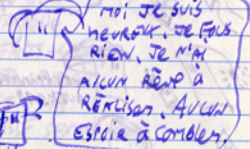 MOI JE SUIS
HEUREUX. JE FOUS
RIEN. JE N'AI
AUCUN RÊVE À
RÉALISER, AUCUN
ESPOIR À COMBLER.